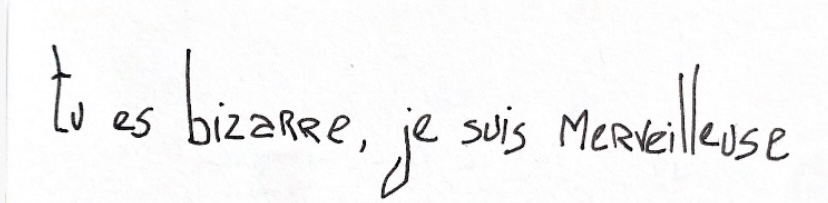 tu es bizarre, je suis Merveilleuse